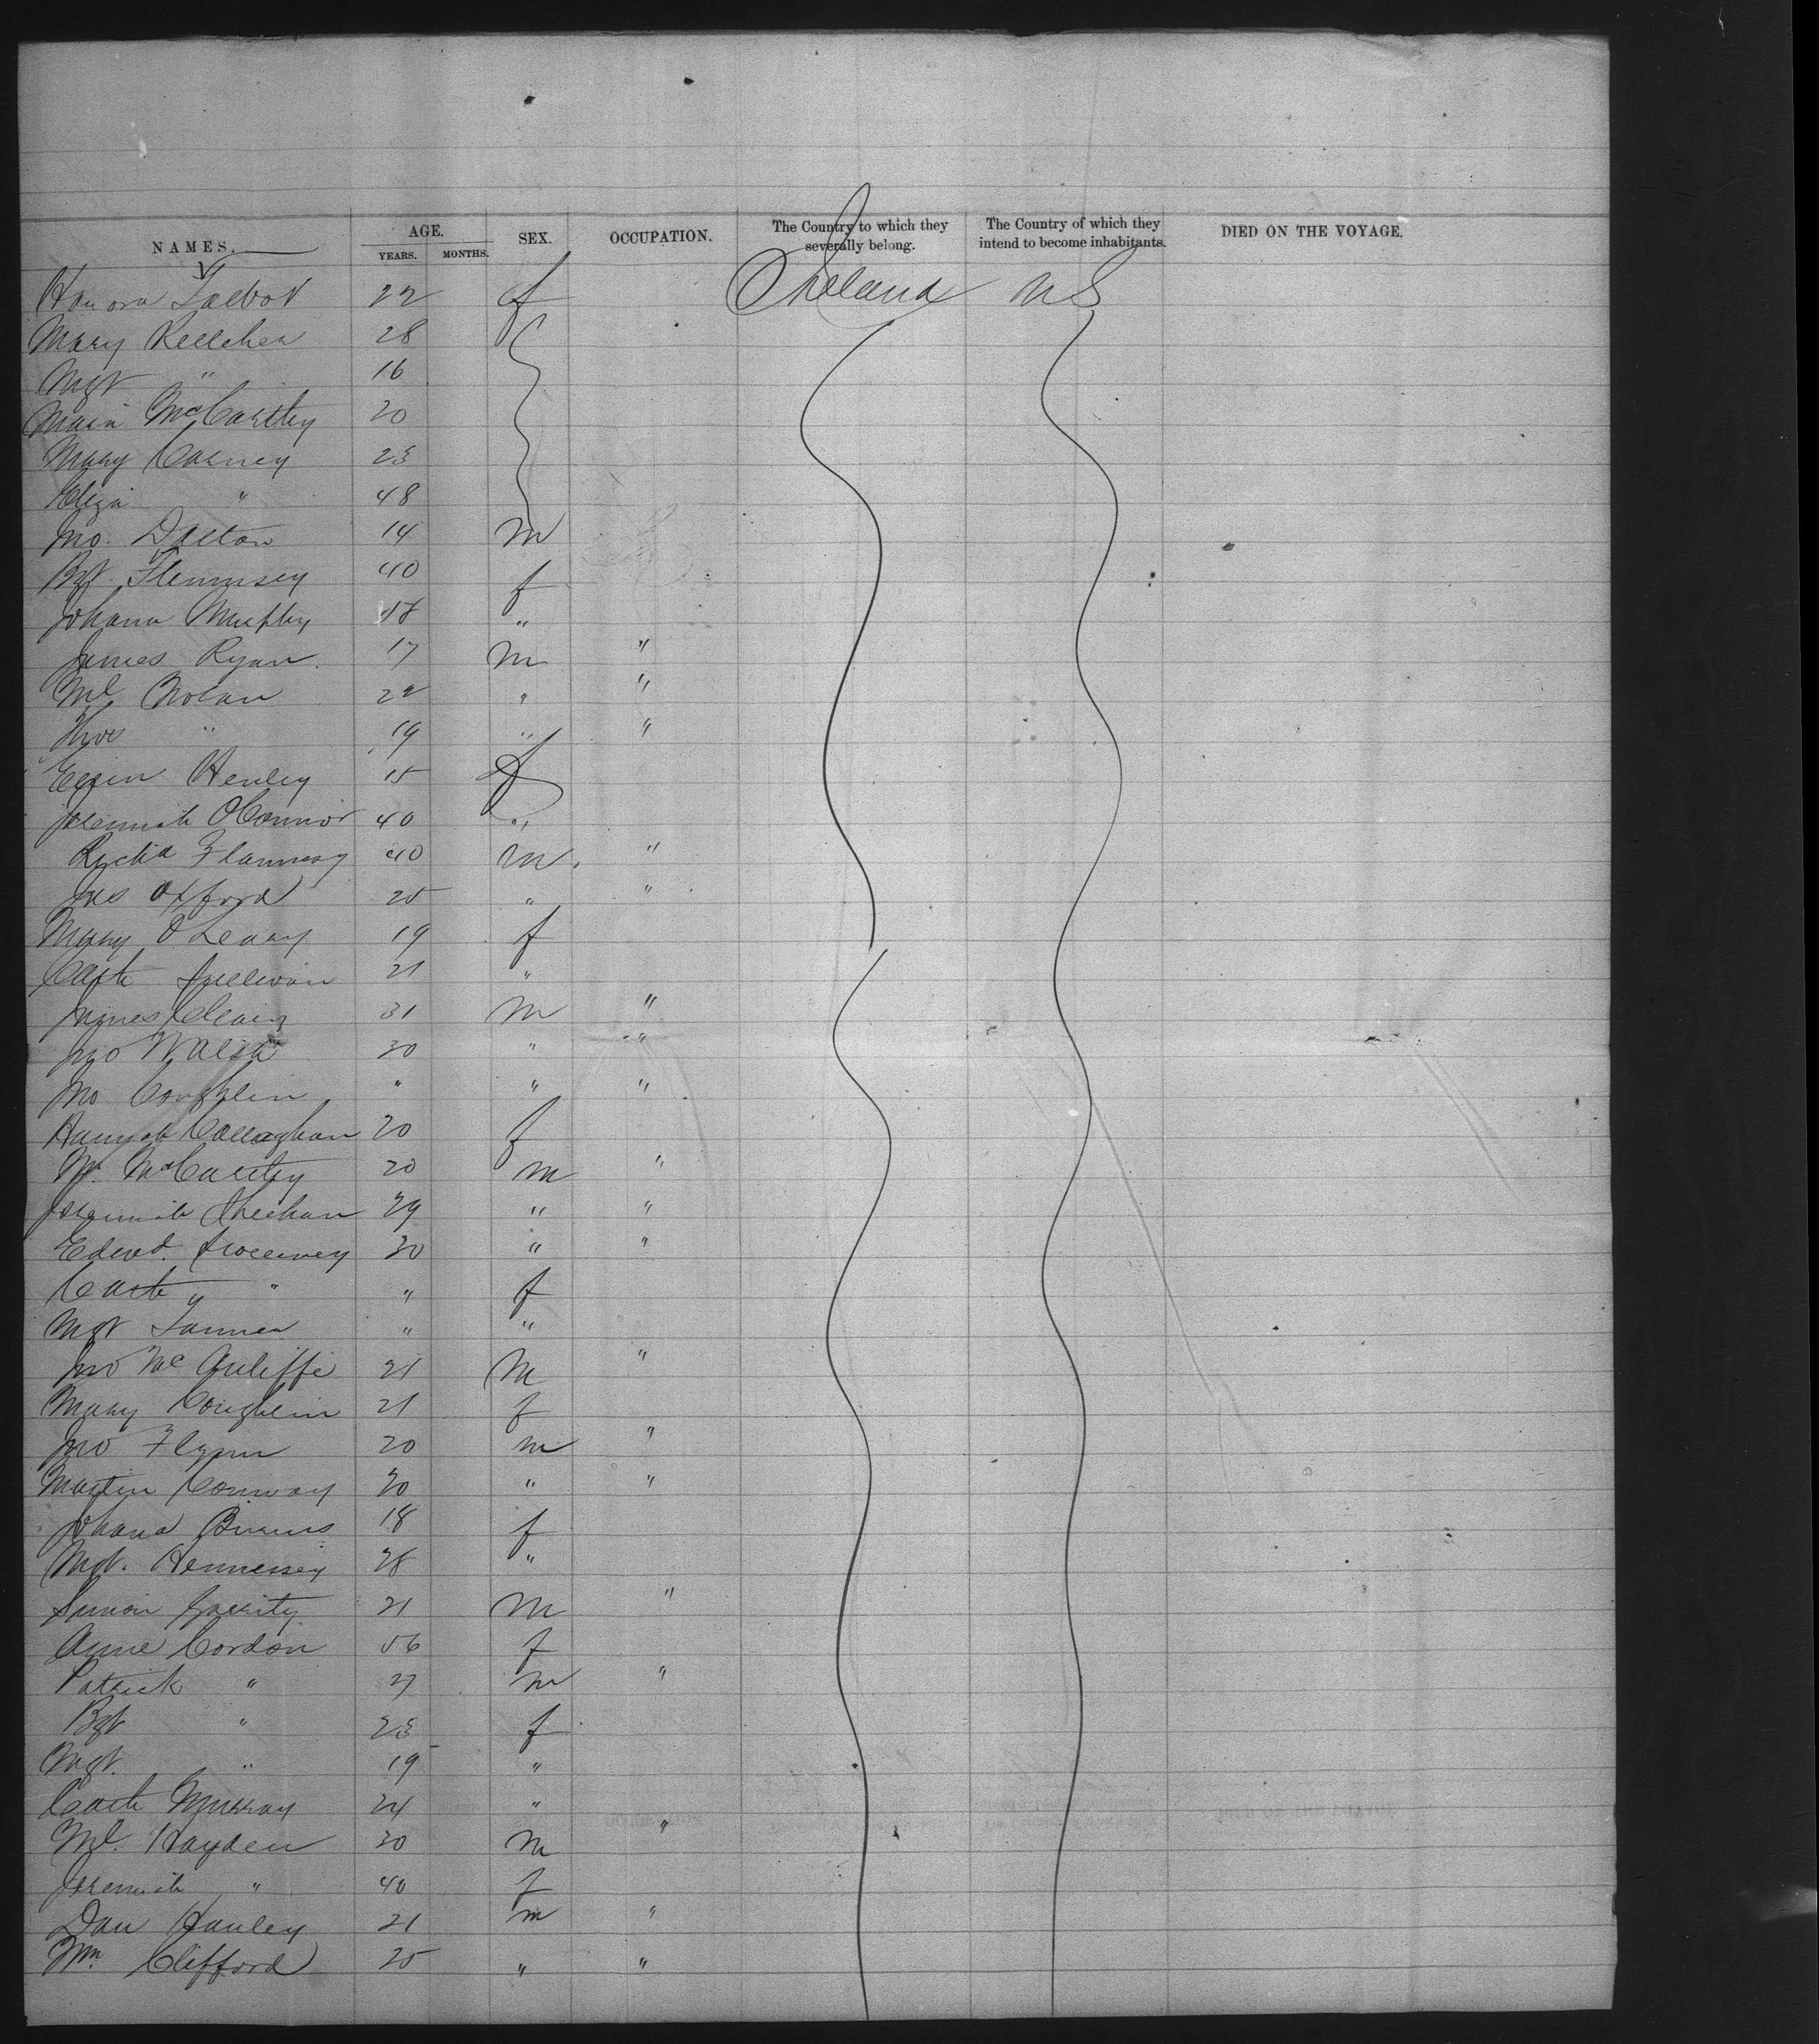 NAMES. AGE. YEARS. MONTHS. SEX. OCCUPATION. The Country to which they severally belong. The Country of which they intend to become inhabitants. DIED ON THE VOYAGE.
Honora Talbot 22 f Ireland US
Mary Kelleher 28
Mgt " 16
Maria McCarthy 20
Mary Carney 23
Eliza " 48
Jno. Dalton 14 M
Bgt. 40 f
Johana Murphy 48 "
James Ryan. 17 M "
Ml Nolan 22 " "
Thos " 19 " "
Ellen Henley 15 f
Jeremiah O'Connor 40 "
40 M. "
Jas Oxford 25 " "
Mary O'Leary 19 f
Cath Sullivan 21 "
James Cleary 31 M "
Jno Walsh 30 " "
Jno Coughlin " " "
Hannah Callaghan 20 f
McCarthy 20 M "
Jeremiah Sheehan 29 " "
Edwd. Sweeney 30 " "
Cath " " " f
Mgt " "
Jno McAuliffe 21 M "
Mary Coughlin 21 f
Jno Flynn 20 M "
Martin Conway 20 " "
Johana Burns 18 f
Mgt. Hennessey 28 "
Simon Garrity 21 M "
Anne Cordon 56 f
Patrick " 27 M "
Bgt " 23 f
Mgt. " 19 "
Cath Murray 24 "
Ml. Hayden 30 M "
Jeremiah " 40 f
Dan Hanley 21 M "
Wm. Clifford 25 " "